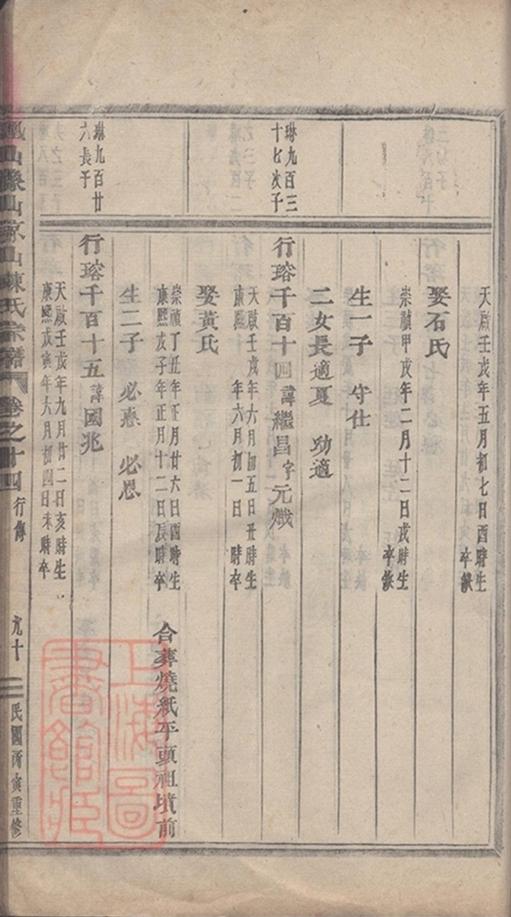 天啟壬戌年五月初七日酉時生
卒缺
娶石氏
崇禎甲戌年二月十二日戌時生
卒缺
生一子 守仕
二女長適夏 功適
琳九百三
十七次子
行瑢千百十四諱繼昌字元熾
天啟壬戌年六月初五日丑時生
康熙 年六月初一日 時卒
娶黃氏
崇禎丁丑年正月廿六日酉時生
康熙戊子年正月十二日辰時卒
合葬燒紙平頭祖墳前
生二子 必泰 必恩
琳九百廿
六長子
行瑢千百十五諱國兆
天啟壬戌年九月廿二日亥時生
康熙戊寅年六月初四日未時卒
山陳氏宗譜
卷之廿四
行傳
九十
民國丙寅重修
上海圖書館藏